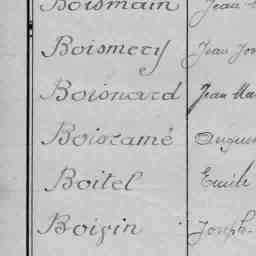 Boismain Jean
Boismery Jean Jos
Boisnard Jean Mar
Boisramé Augus
Boitel Emile
Boivin Joseph